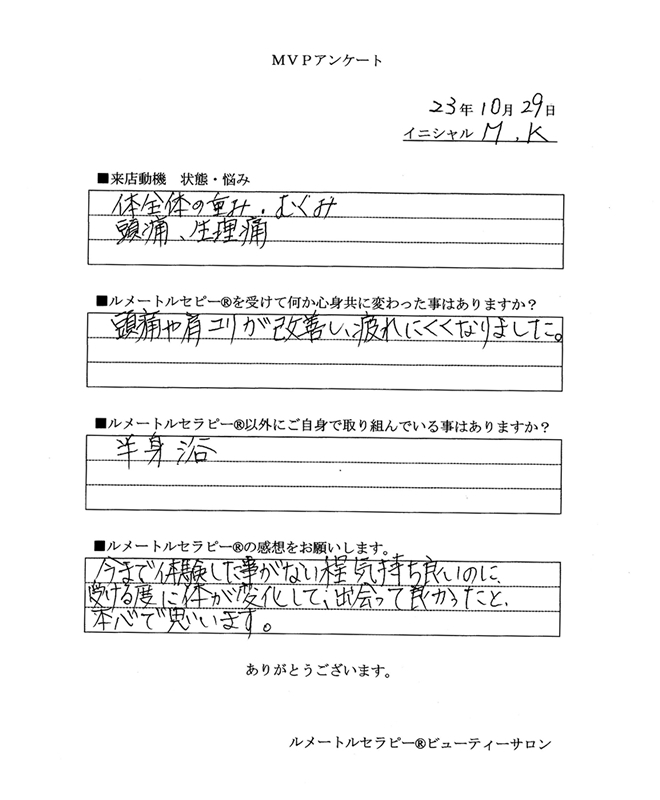 MVPアンケート
23年10月29日
イニシャル M.K
■来店動機 状態・悩み
体全体の重み・むくみ
頭痛、生理痛
■ルメートルセピー®を受けて何か心身共に変わった事はありますか？
頭痛や肩コリが改善し、疲れにくくなりました。
■ルメートルセラピー®以外にご自身で取り組んでいる事はありますか？
半身浴
■ルメートルセラピー®の感想をお願いします。
今まで体験した事がない程気持ち良いのに、
受ける度に体が変化して、出会って良かったと、
本心で思います。
ありがとうございます。
ルメートルセラピー®ビューティーサロン